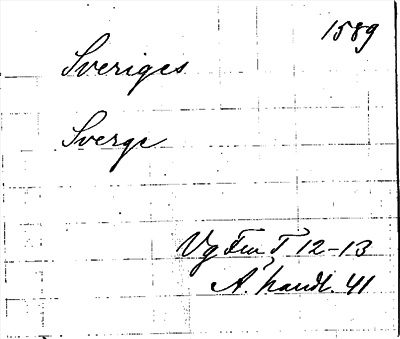 1589
Sveriges
Sverge
Vg Fm T 12-13
A. handl. 41